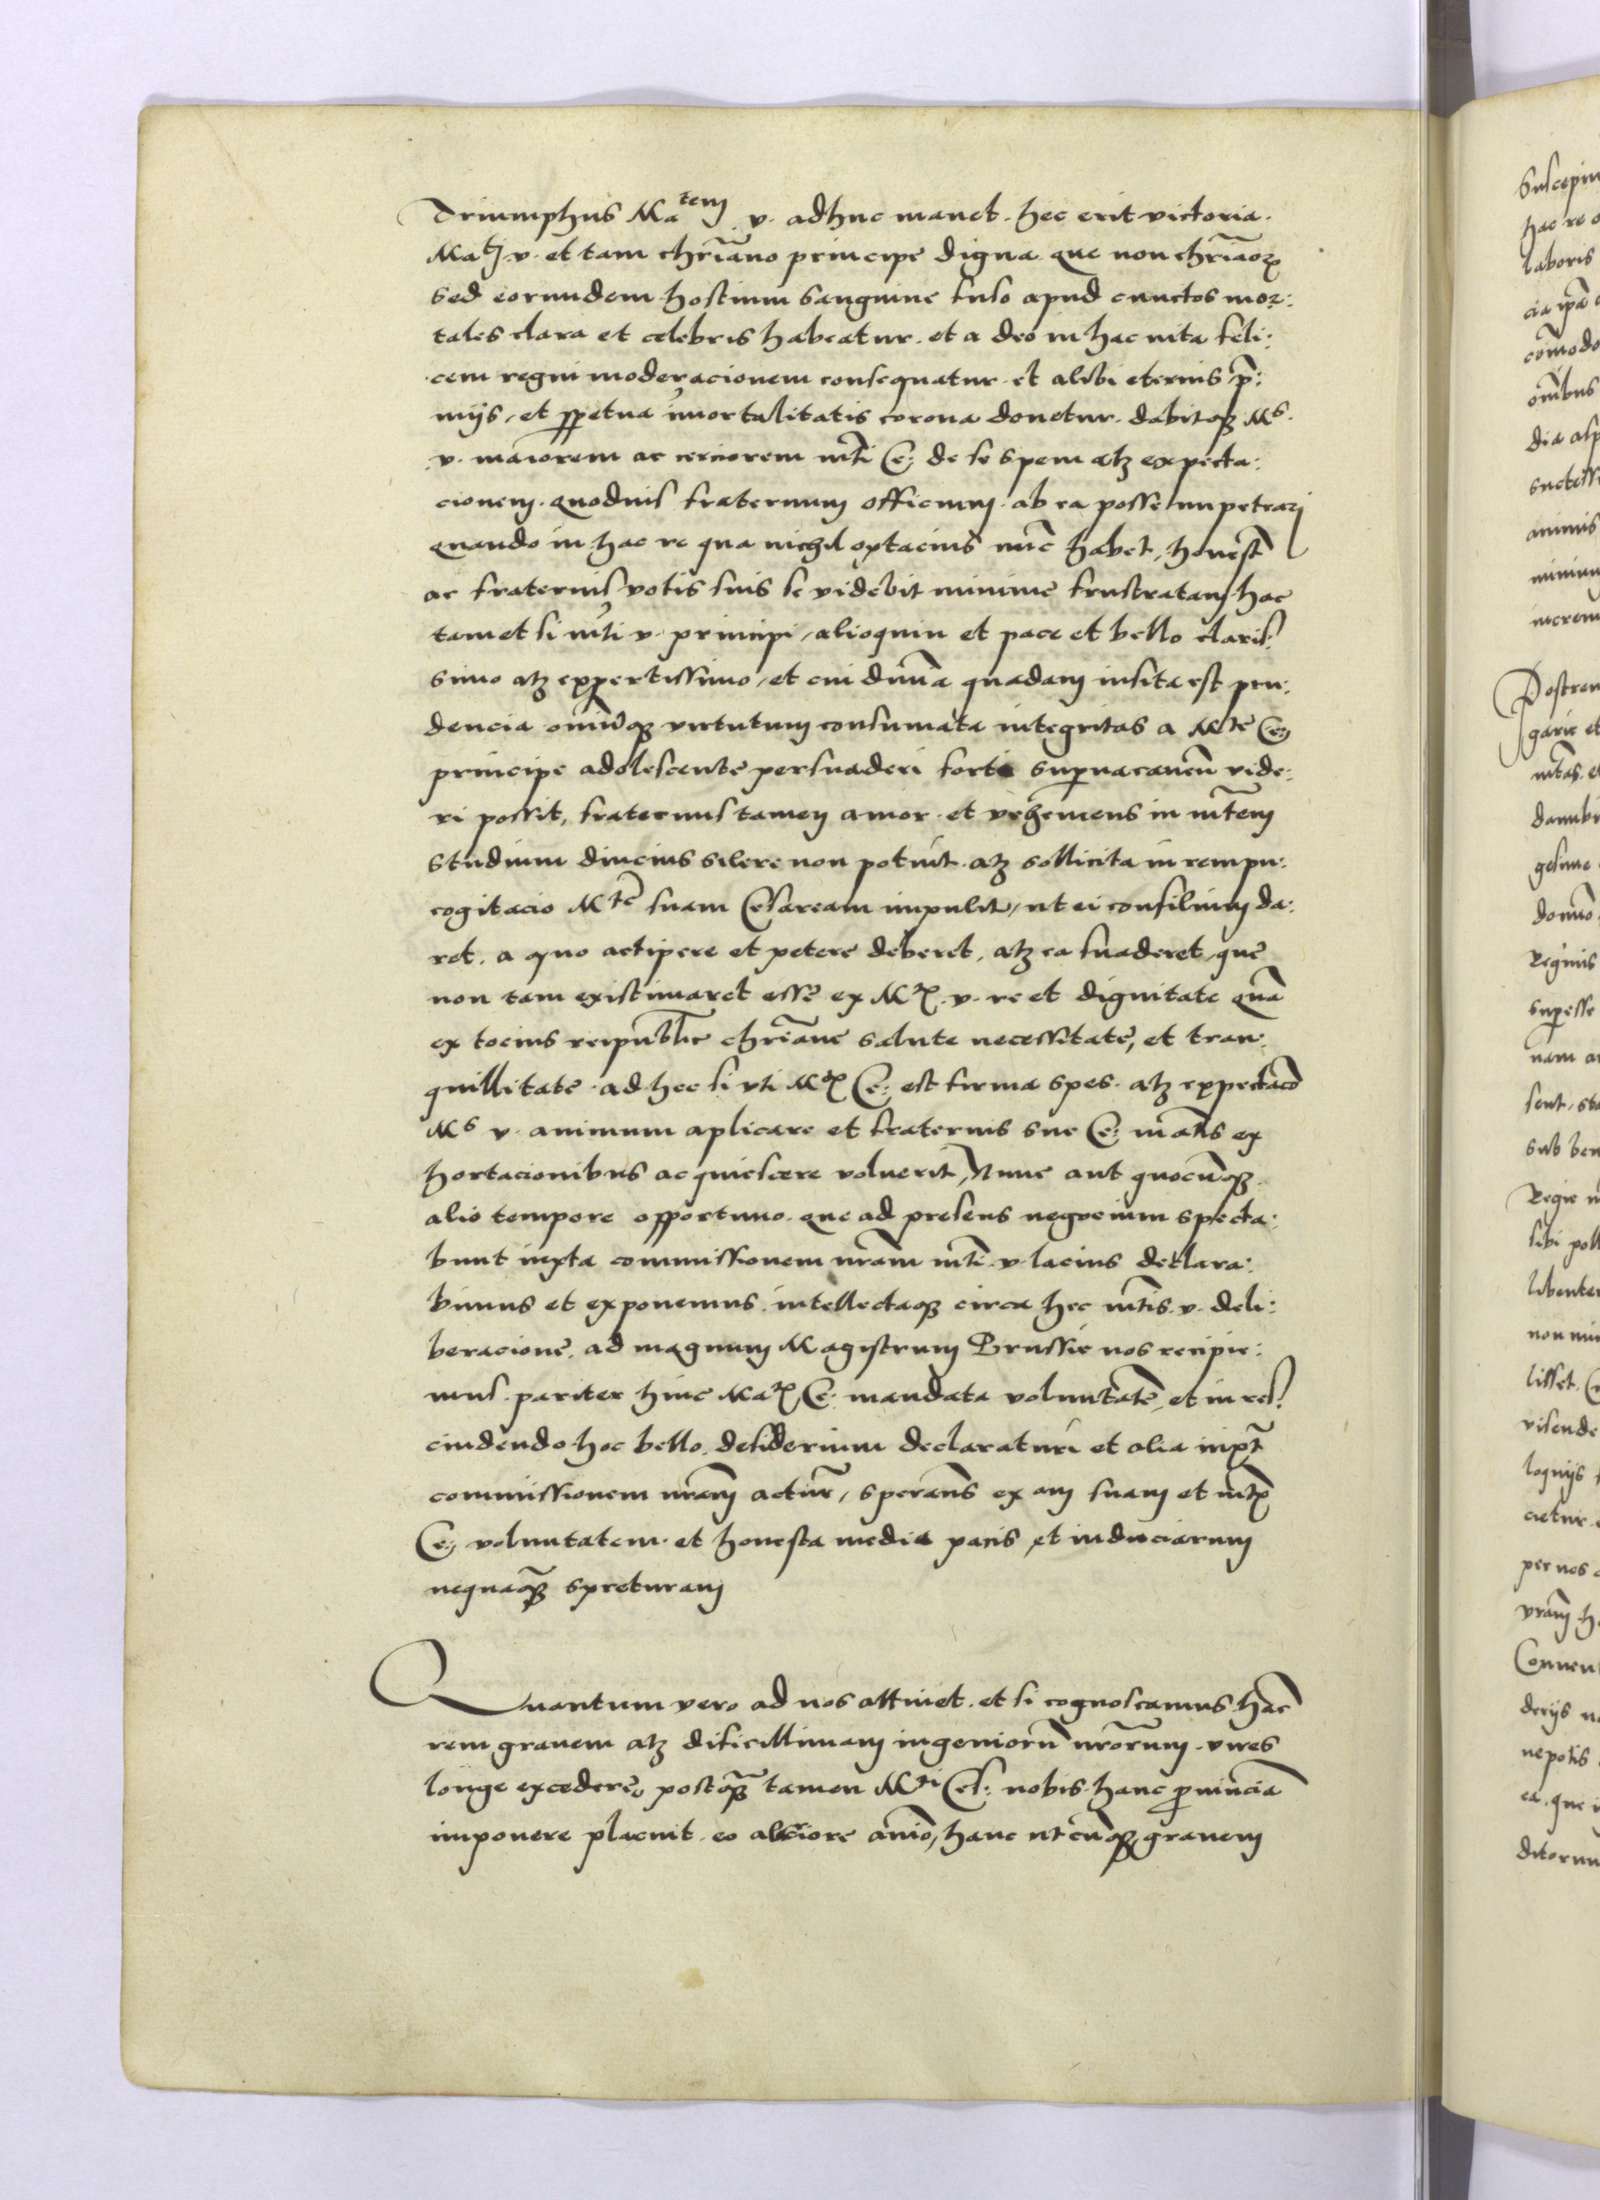 Triumphus Matem v. adhuc manet. hec erit victoria.
Matj v. et tam chr̃iano principe digna que non chr̃iaoꝝ
sed eorundem hostium sanguine fuso apud cunctos mor:
tales clara et celebris habeatur. et a deo in hac uita feli:
cem regni moderacionem consequatur et alibi eternis p̃:
mijs, et ꝑpetua īmortalitatis corona donetur. dabitqꝫ Ms.
v. maiorem ac cerciorem mt̃i Ce: de se spem atqꝫ expecta:
cionem. quoduis fraternum officium. ab ea posse impetrarj
quando in hac re qua nichil optacius nūc habet, honest̃
ac fraternis votis suis se videbit minime frustratam hac
tamet si mt̃i v. principi, alioquin et pace et bello claris:
simo atqꝫ expertissimo, et cui diuīa quadam insita est pru:
dencia omniūqꝫ virtutum consumata integritas a Mte Ce:
principe adolescente persuaderi forte supuacaneū vide:
ri possit, fraternus tamen amor et vehemens in mt̃em
studium diucius silere non potuit. atqꝫ sollicita in rempu:
cogitacio Mtē suam Cesaream impulit, ut ei consilium da:
ret. a quo accipere et petere deberet, atqꝫ ea suaderet que
non tam existimaret esse ex Mtꝭ. v. re et dignitate quā
ex tocius reipublice chr̃iane salute necessitate, et tran:
quillitate. ad hec si uti Mtꝭ Ce: est firma spes. atqꝫ expectacō
Ms v. animum aplicare et fraternis sue Ce: māt̃is ex
hortacionibus acquiescere voluerit, Nunc aut quocūqꝫ
alio tempore opportuno que ad presens negocium specta:
bunt iuxta commissionem nram̃ mt̃i v. lacius declara:
bimus et exponemus. intellectaqꝫ circa hec mt̃is v. deli:
beracione. ad magnum Magistrum Prussie nos recipie:
mus pariter hinc Matꝭ Ce: mandata voluntatē, et in res:
cindendo hoc bello. desiderium declaraturi et alia iuxt̃
commissionem nram̃ actur̃, sperant̃es ex am suam et mt̃ꝭ
Ce: voluntatem et honesta media pacis et induciarum
nequaqꝫ̃ spreturam
Quantum vero ad nos attinet. et si cognoscamus hanc
rem grauem atqꝫ dificillimam ingeniorū nrōrum vires
longe excedere, postqꝫ̃ tamen Mti Ces: nobis hanc ꝓuinciā
imponere placuit eo alacriore animo, hanc utcūqꝫ grauem